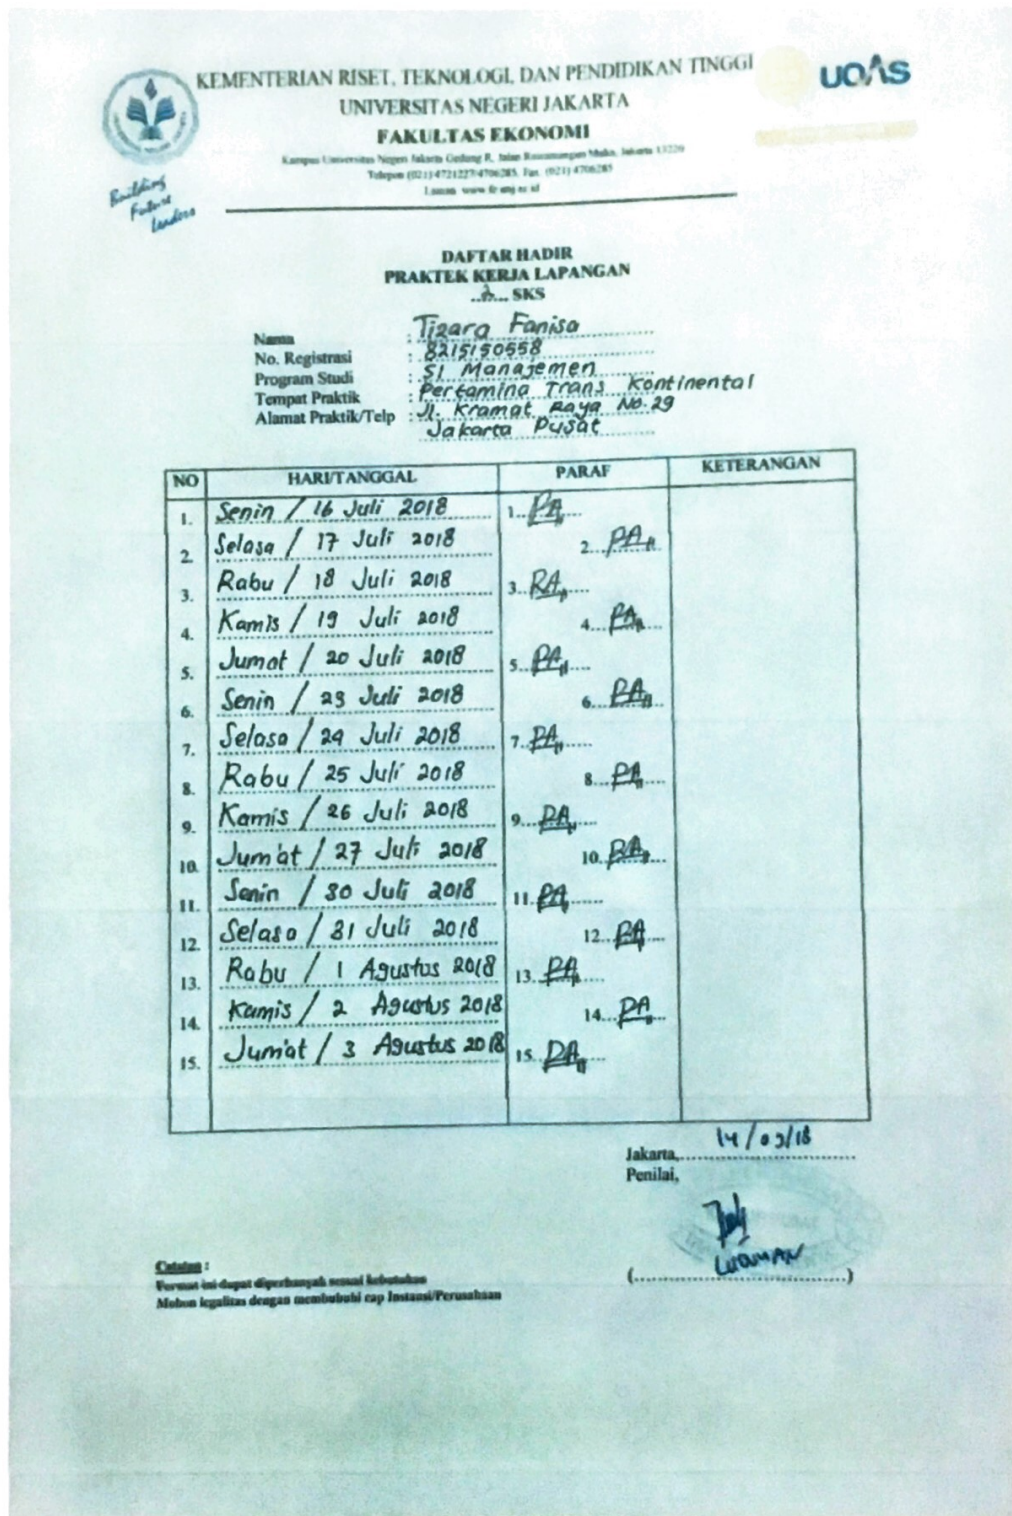 KEMENTERIAN RISET, TEKNOLOGI, DAN PENDIDIKAN TINGGI
UNIVERSITAS NEGERI JAKARTA
FAKULTAS EKONOMI
Kampus Universitas Negeri Jakarta Gedung R, Jalan Rawamangun Muka, Jakarta 13220
Telepon (021) 4721227/4706285, Fax. (021) 4706285
Laman www fe unj ac id
Building
Future
Leaders
UQAS
DAFTAR HADIR
PRAKTEK KERJA LAPANGAN
..2.... SKS
Nama : Tizara Fanisa
No. Registrasi : 8215150558
Program Studi : S1 Manajemen
Tempat Praktik : Pertamina Trans Kontinental
Alamat Praktik/Telp : Jl. Kramat Raya No. 29
Jakarta Pusat
NO HARI/TANGGAL PARAF KETERANGAN
1. Senin / 16 Juli 2018 1. PA
2. Selasa / 17 Juli 2018 2. PA
3. Rabu / 18 Juli 2018 3. PA
4. Kamis / 19 Juli 2018 4. PA
5. Jumat / 20 Juli 2018 5. PA
6. Senin / 23 Juli 2018 6. PA
7. Selasa / 24 Juli 2018 7. PA
8. Rabu / 25 Juli 2018 8. PA
9. Kamis / 26 Juli 2018 9. PA
10. Jum'at / 27 Juli 2018 10. PA
11. Senin / 30 Juli 2018 11. PA
12. Selasa / 31 Juli 2018 12. PA
13. Rabu / 1 Agustus 2018 13. PA
14. Kamis / 2 Agustus 2018 14. PA
15. Jum'at / 3 Agustus 2018 15. PA
Jakarta, 14/09/18
Penilai,
LUQMAN
(..............................)
Catatan :
Format ini dapat diperbanyak sesuai kebutuhan
Mohon legalitas dengan membubuhi cap Instansi/Perusahaan